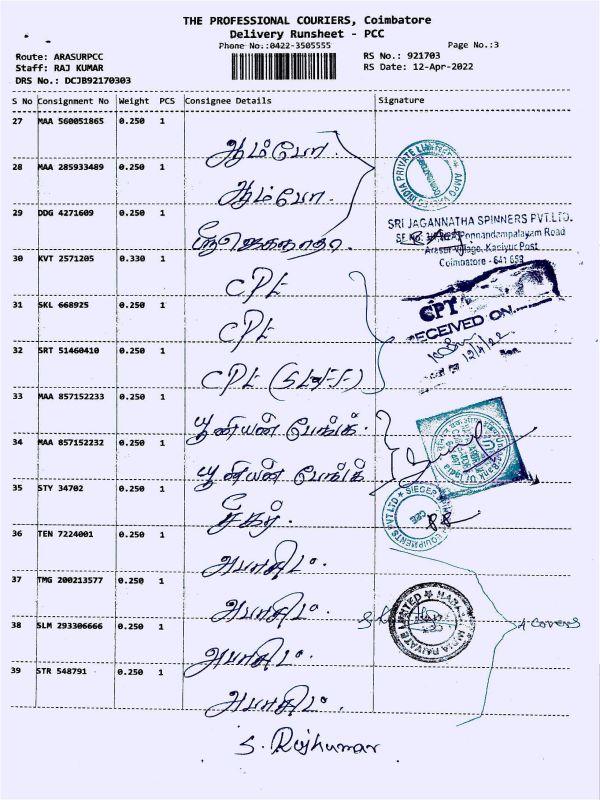 THE PROFESSIONAL COURIERS, Coimbatore
Delivery Runsheet - PCC
Phone No.:0422-3505555
Page No.:3
Route: ARASURPCC
RS No.: 921703
Staff: RAJ KUMAR
RS Date: 12-Apr-2022
DRS No.: DCJB92170303
S No Consignment No Weight PCS Consignee Details Signature
27 MAA 560051865 0.250 1
ஆம்போ.
28 MAA 285933489 0.250 1
ஆம்போ.
29 DDG 4271609 0.250 1
SRI JAGANNATHA SPINNERS PVT.LTD.
Ponnandampalayam Road
Arasur Village, Kaniyur Post
Coimbatore - 641 659
30 KVT 2571205 0.330 1
CPT
31 SKL 668925 0.250 1
CPT
CPT
RECEIVED ON
12/4/22
32 SRT 51460410 0.250 1
CPT
33 MAA 857152233 0.250 1
யூனியன் பேங்க்.
34 MAA 857152232 0.250 1
யூனியன் பேங்க்
35 STY 34702 0.250 1
SIEGER EQUIPMENTS PVT LTD
36 TEN 7224001 0.250 1
37 TMG 200213577 0.250 1
38 SLM 293306666 0.250 1
4 covers
39 STR 548791 0.250 1
S. Rajkumar